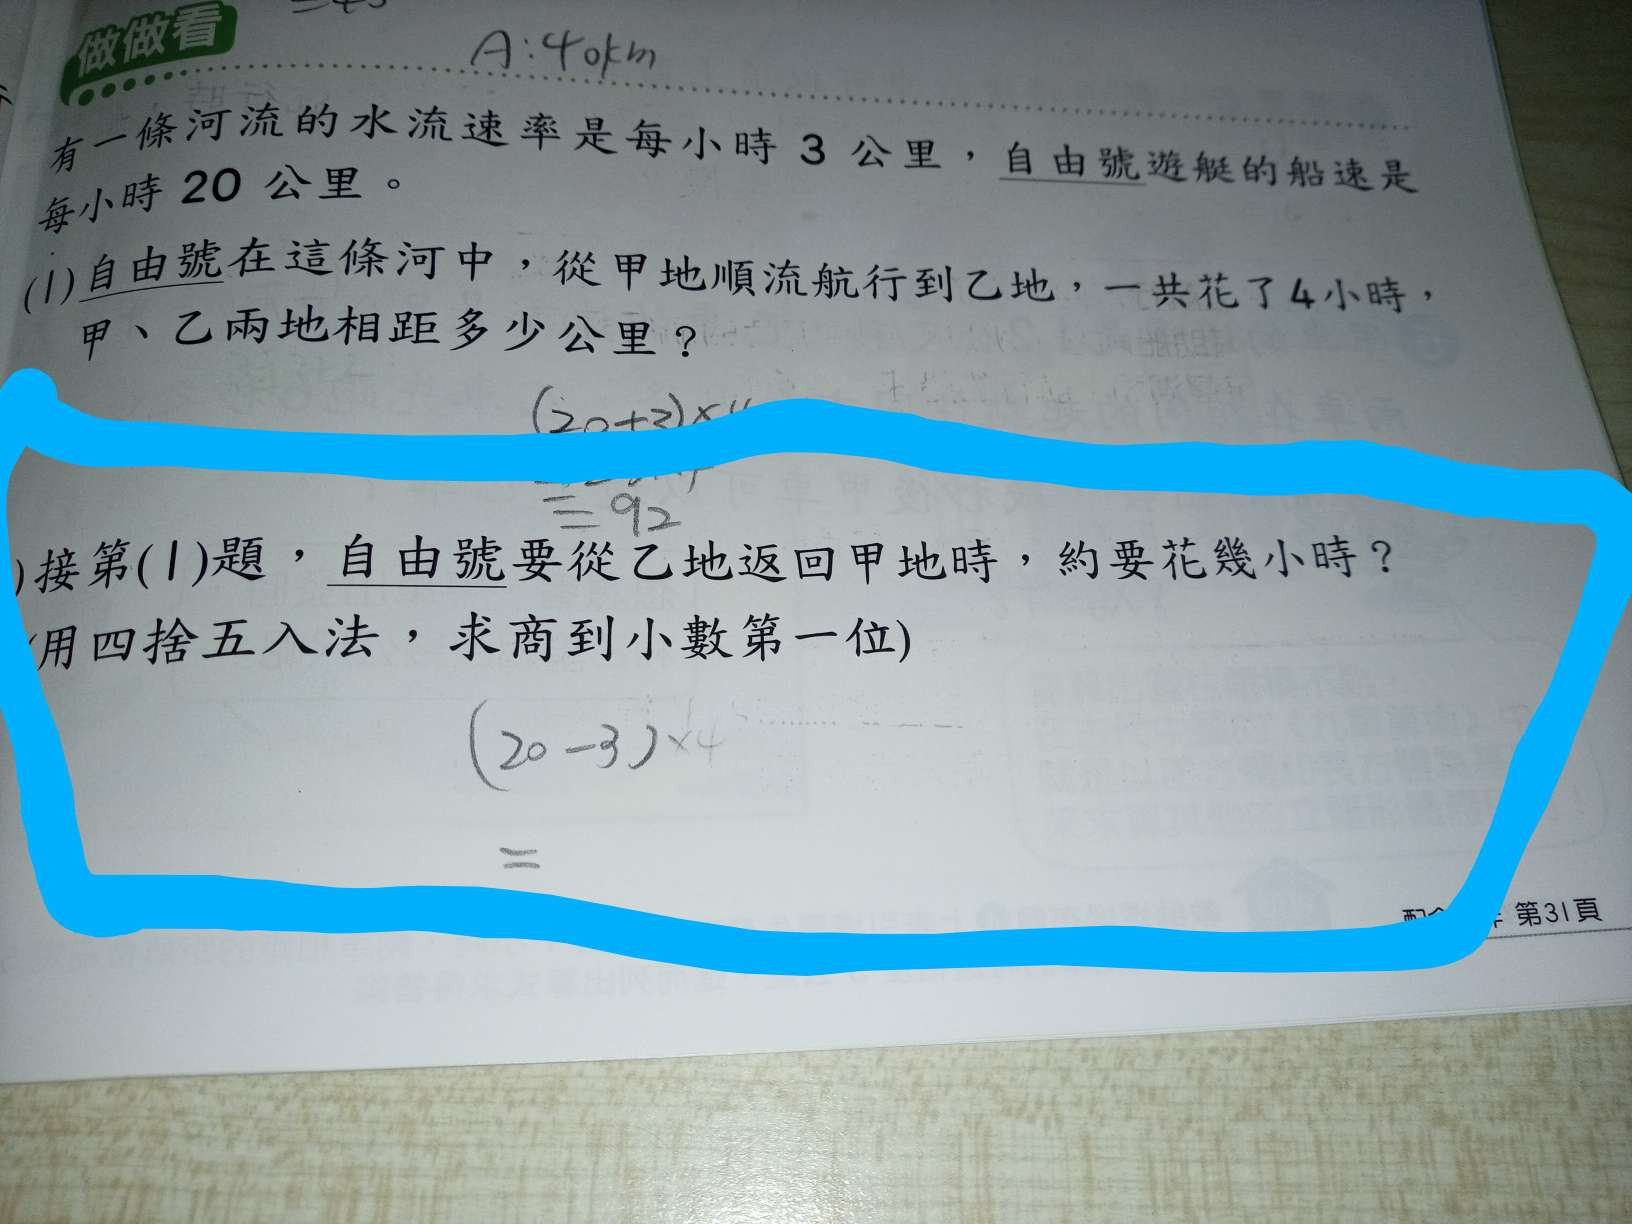 做做看
A:40km
有一條河流的水流速率是每小時 3 公里，自由號遊艇的船速是
每小時 20 公里。
(1)自由號在這條河中，從甲地順流航行到乙地，一共花了4小時，
甲、乙兩地相距多少公里？
(20+3)×4
=92
)接第(1)題，自由號要從乙地返回甲地時，約要花幾小時？
(用四捨五入法，求商到小數第一位)
(20-3)×4
=
第31頁